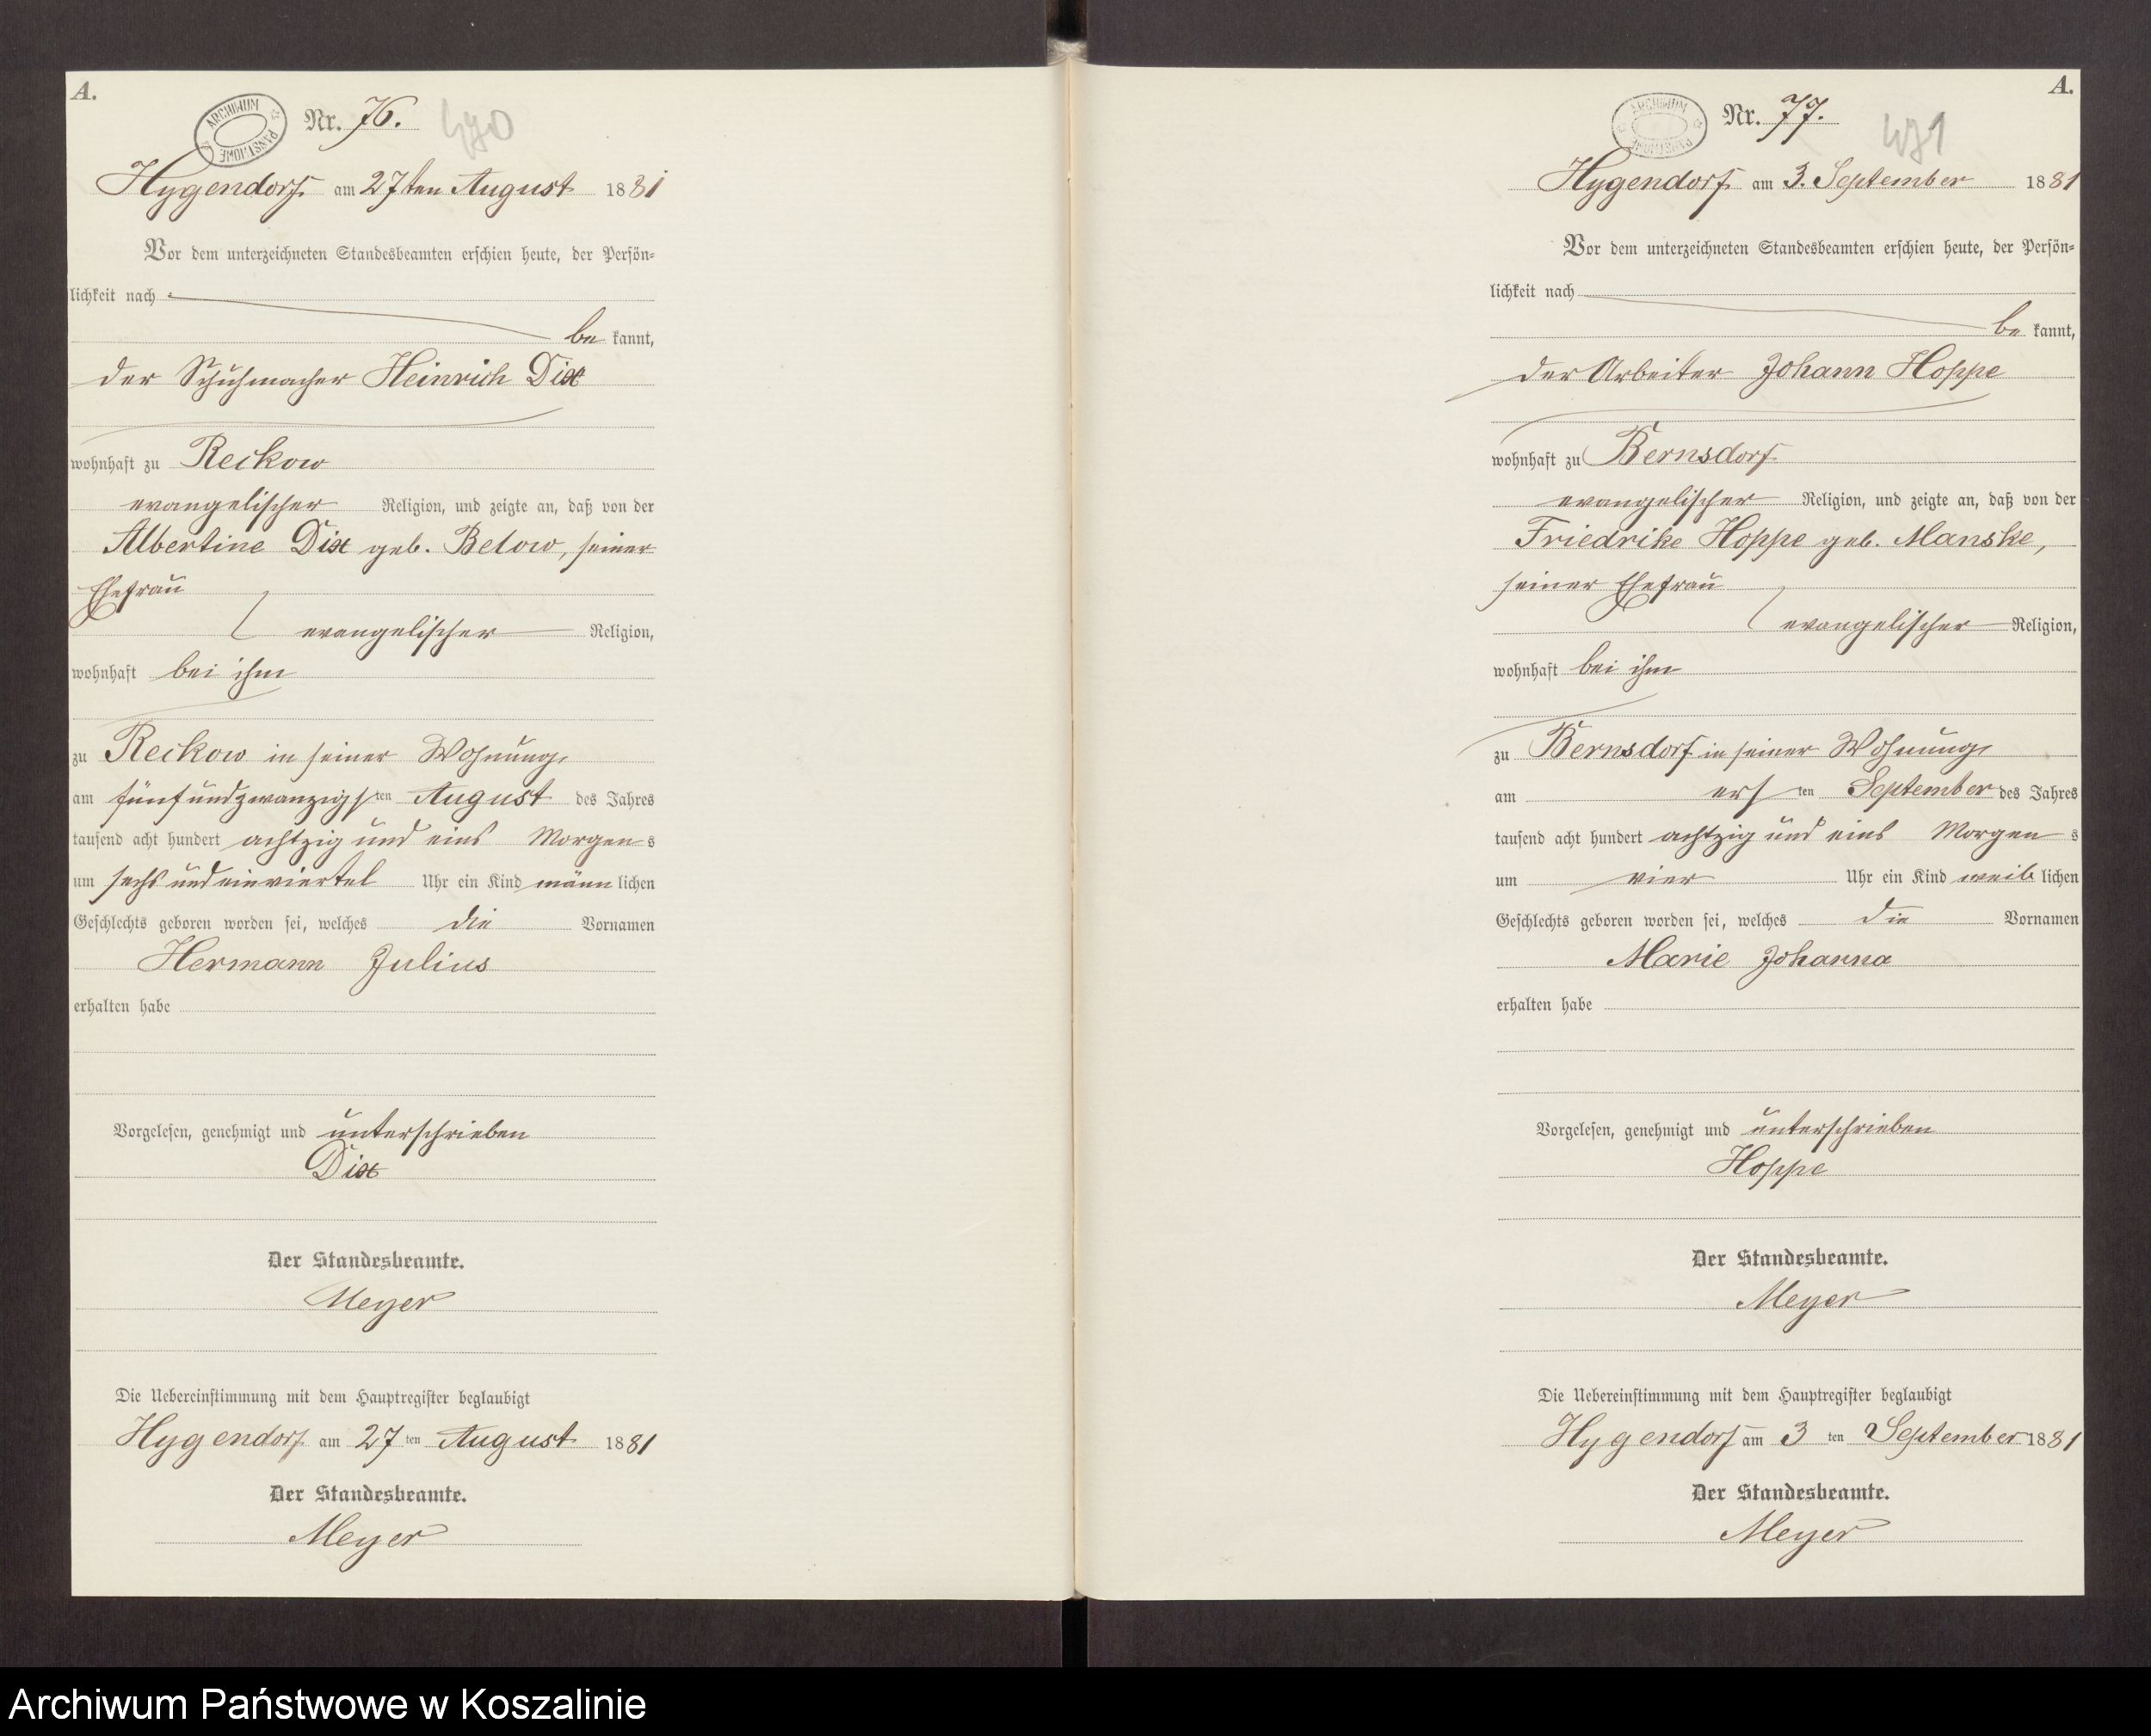 A.
ARCHIWUM PAŃSTWOWE
Nr. 76.
Hygendorf am 27ten August 1881
Vor dem unterzeichneten Standesbeamten erschien heute, der Persön=
lichkeit nach
be kannt,
der Schuhmacher Heinrich Dix
wohnhaft zu Reckow
evangelischer Religion, und zeigte an, daß von der
Albertine Dix geb. Below, seiner
Ehefrau
evangelischer Religion,
wohnhaft bei ihm
zu Reckow in seiner Wohnung,
am fünfundzwanzigsten August des Jahres
tausend acht hundert achtzig und eins Morgens
um sechs und einviertel Uhr ein Kind männlichen
Geschlechts geboren worden sei, welches die Vornamen
Hermann Julius
erhalten habe
Vorgelesen, genehmigt und unterschrieben
Dix
Der Standesbeamte.
Meyer
Die Uebereinstimmung mit dem Hauptregister beglaubigt
Hygendorf am 27 ten August 1881
Der Standesbeamte.
Meyer
A.
ARCHIWUM PAŃSTWOWE
Nr. 77.
Hygendorf am 3. September 1881
Vor dem unterzeichneten Standesbeamten erschien heute, der Persön=
lichkeit nach
be kannt,
der Arbeiter Johann Hoppe
wohnhaft zu Bernsdorf
evangelischer Religion, und zeigte an, daß von der
Friedrike Hoppe geb. Manske,
seiner Ehefrau
evangelischer Religion,
wohnhaft bei ihm
zu Bernsdorf in seiner Wohnung,
am ersten September des Jahres
tausend acht hundert achtzig und eins Morgens
um vier Uhr ein Kind weiblichen
Geschlechts geboren worden sei, welches die Vornamen
Marie Johanna
erhalten habe
Vorgelesen, genehmigt und unterschrieben
Hoppe
Der Standesbeamte.
Meyer
Die Uebereinstimmung mit dem Hauptregister beglaubigt
Hygendorf am 3 ten September 1881
Der Standesbeamte.
Meyer
Archiwum Państwowe w Koszalinie